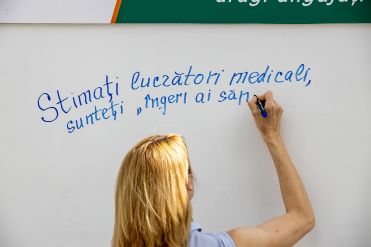 dragi angajați
Stimați lucrători medicali,
sunteți „îngeri ai săn